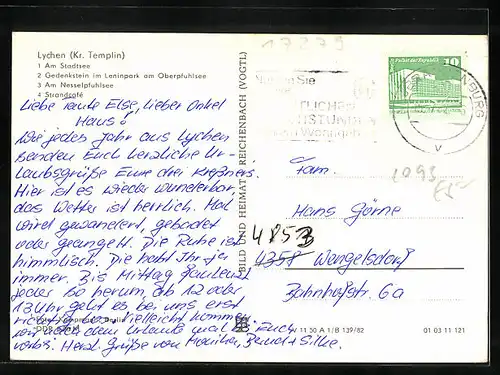 Lychen (Kr. Templin)
1 Am Stadtsee
2 Gedenkstein im Leninpark am Oberpfuhlsee
3 Am Nesselpfuhlsee
4 Strandcafé
Liebe Tante Else, Lieber Onkel
Hans!
Wie jedes Jahr aus Lychen
senden Euch herzliche Ur-
laubsgrüße Eure drei
Hier ist es wieder wunderbar,
das Wetter ist herrlich. Mal
wird gewandert, gebadet
oder geangelt. Die Ruhe ist
himmlisch. Die habt Ihr ja
immer. Bis Mittag faulenzt
jeder so herum, ab 12 oder
13 Uhr geht es bei uns erst
richtig los. Vielleicht kommen
wir nach dem Urlaub mal bei Euch
vorbei. Herzl. Grüße von Monika, Bernd + Silke.
BILD UND HEIMAT REICHENBACH (VOGTL)
17279
Palast der Republik
10
DDR
BURG
Sie
TLICHER
Fam.
1093
Hans Görne
4853
4358 Wengelsdorf
Bahnhofstr. 6a
V 11 50 A 1/B 139/82
01 03 11 121